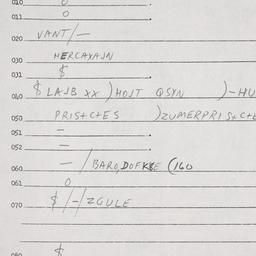 010 0
011 0
020 VANT/—
030 MERCAYAJN
031 $
040 $ LAJB XX ) HOJT QSYN )-HU
050 PRIS+C+ES )ZUMERPRIS+C+E
051 —
052 =
060 — / BARO,DOFKSE (160
061 0
070 $/-/ZGULE
080 $